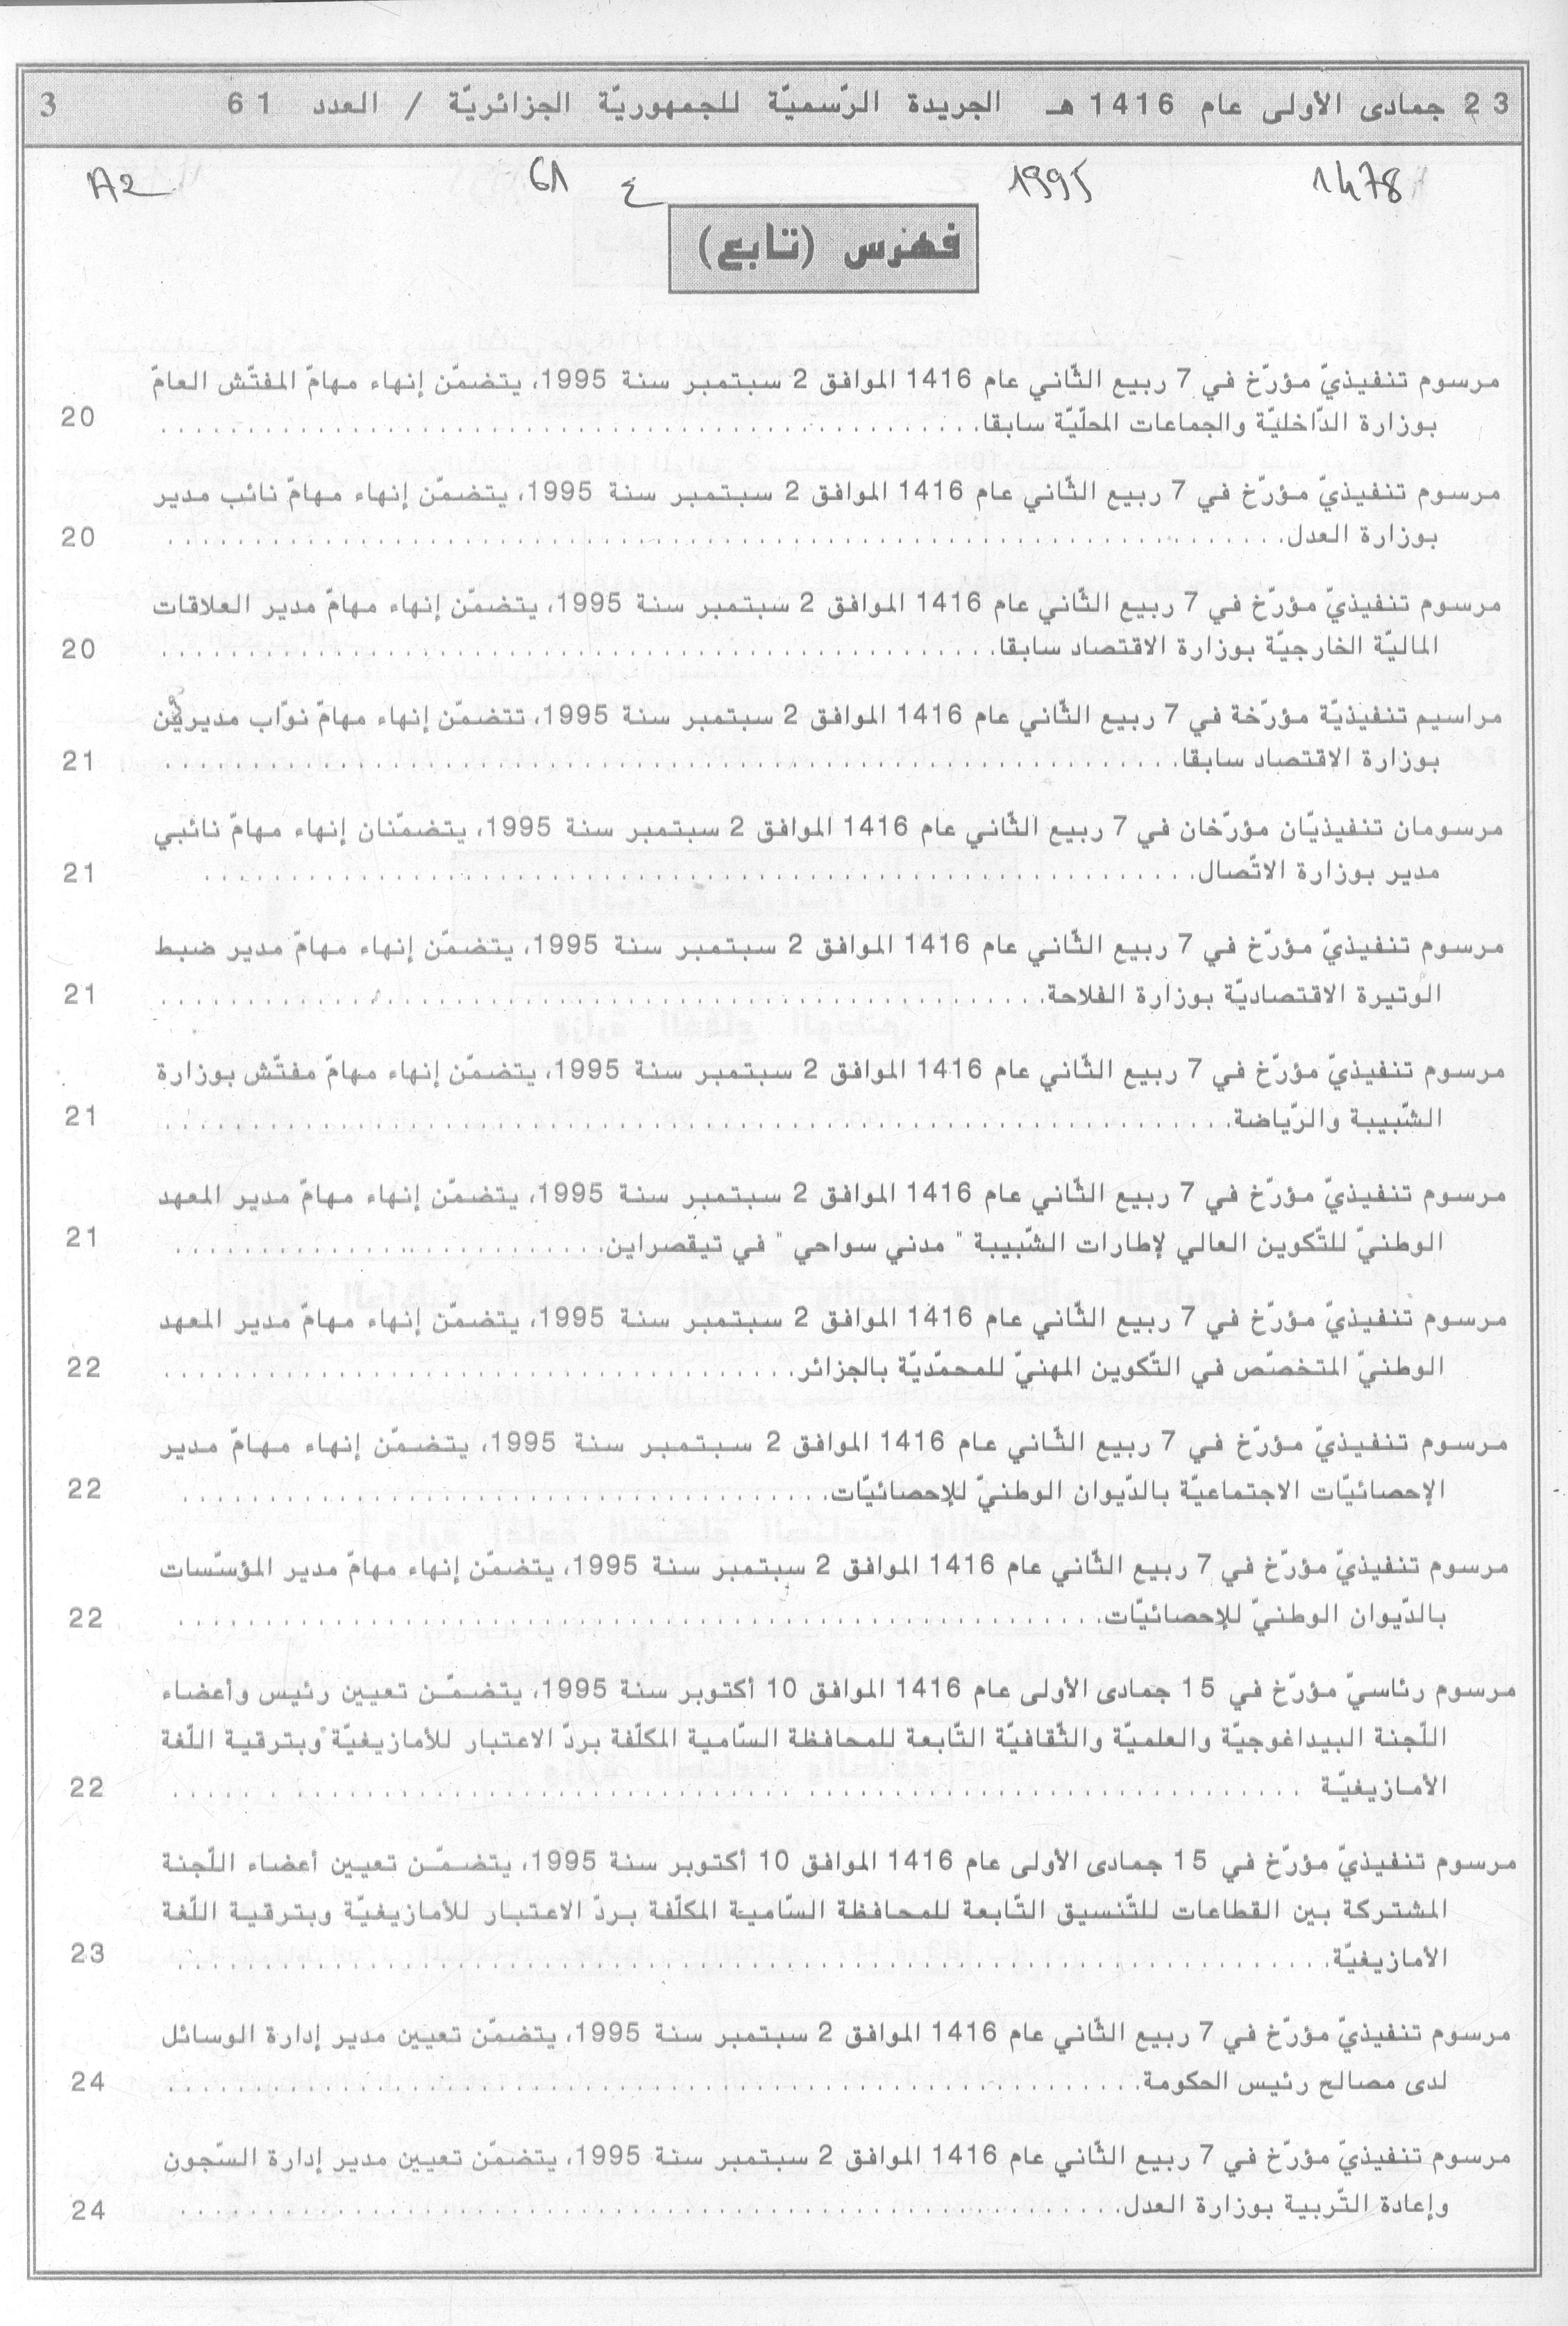 23 جمادى الأولى عام 1416 هـ الجريدة الرّسميّة للجمهوريّة الجزائريّة / العدد 61 3
1478 1995 ع 61 A2
فهرس (تابع)
مرسوم تنفيذيّ مؤرّخ في 7 ربيع الثّاني عام 1416 الموافق 2 سبتمبر سنة 1995، يتضمّن إنهاء مهامّ المفتّش العامّ
بوزارة الدّاخليّة والجماعات المحلّيّة سابقا. 20
مرسوم تنفيذيّ مؤرّخ في 7 ربيع الثّاني عام 1416 الموافق 2 سبتمبر سنة 1995، يتضمّن إنهاء مهامّ نائب مدير
بوزارة العدل. 20
مرسوم تنفيذيّ مؤرّخ في 7 ربيع الثّاني عام 1416 الموافق 2 سبتمبر سنة 1995، يتضمّن إنهاء مهامّ مدير العلاقات
الماليّة الخارجيّة بوزارة الاقتصاد سابقا. 20
مراسيم تنفيذيّة مؤرّخة في 7 ربيع الثّاني عام 1416 الموافق 2 سبتمبر سنة 1995، تتضمّن إنهاء مهامّ نوّاب مديريّن
بوزارة الاقتصاد سابقا. 21
مرسومان تنفيذيّان مؤرّخان في 7 ربيع الثّاني عام 1416 الموافق 2 سبتمبر سنة 1995، يتضمّنان إنهاء مهامّ نائبي
مدير بوزارة الاتّصال. 21
مرسوم تنفيذيّ مؤرّخ في 7 ربيع الثّاني عام 1416 الموافق 2 سبتمبر سنة 1995، يتضمّن إنهاء مهامّ مدير ضبط
الوتيرة الاقتصاديّة بوزارة الفلاحة. 21
مرسوم تنفيذيّ مؤرّخ في 7 ربيع الثّاني عام 1416 الموافق 2 سبتمبر سنة 1995، يتضمّن إنهاء مهامّ مفتّش بوزارة
الشّبيبة والرّياضة. 21
مرسوم تنفيذيّ مؤرّخ في 7 ربيع الثّاني عام 1416 الموافق 2 سبتمبر سنة 1995، يتضمّن إنهاء مهامّ مدير المعهد
الوطنيّ للتّكوين العالي لإطارات الشّبيبة " مدني سواحي " في تيقصراين. 21
مرسوم تنفيذيّ مؤرّخ في 7 ربيع الثّاني عام 1416 الموافق 2 سبتمبر سنة 1995، يتضمّن إنهاء مهامّ مدير المعهد
الوطنيّ المتخصّص في التّكوين المهنيّ للمحمّديّة بالجزائر. 22
مرسوم تنفيذيّ مؤرّخ في 7 ربيع الثّاني عام 1416 الموافق 2 سبتمبر سنة 1995، يتضمّن إنهاء مهامّ مدير
الإحصائيّات الاجتماعيّة بالدّيوان الوطنيّ للإحصائيّات. 22
مرسوم تنفيذيّ مؤرّخ في 7 ربيع الثّاني عام 1416 الموافق 2 سبتمبر سنة 1995، يتضمّن إنهاء مهامّ مدير المؤسّسات
بالدّيوان الوطنيّ للإحصائيّات. 22
مرسوم رئاسيّ مؤرّخ في 15 جمادى الأولى عام 1416 الموافق 10 أكتوبر سنة 1995، يتضمّن تعيين رئيس وأعضاء
اللّجنة البيداغوجيّة والعلميّة والثّقافيّة التّابعة للمحافظة السّامية المكلّفة بردّ الاعتبار للأمازيغيّة وبترقية اللّغة
الأمازيغيّة 22
مرسوم تنفيذيّ مؤرّخ في 15 جمادى الأولى عام 1416 الموافق 10 أكتوبر سنة 1995، يتضمّن تعيين أعضاء اللّجنة
المشتركة بين القطاعات للتّنسيق التّابعة للمحافظة السّامية المكلّفة بردّ الاعتبار للأمازيغيّة وبترقية اللّغة
الأمازيغيّة. 23
مرسوم تنفيذيّ مؤرّخ في 7 ربيع الثّاني عام 1416 الموافق 2 سبتمبر سنة 1995، يتضمّن تعيين مدير إدارة الوسائل
لدى مصالح رئيس الحكومة. 24
مرسوم تنفيذيّ مؤرّخ في 7 ربيع الثّاني عام 1416 الموافق 2 سبتمبر سنة 1995، يتضمّن تعيين مدير إدارة السّجون
وإعادة التّربية بوزارة العدل. 24